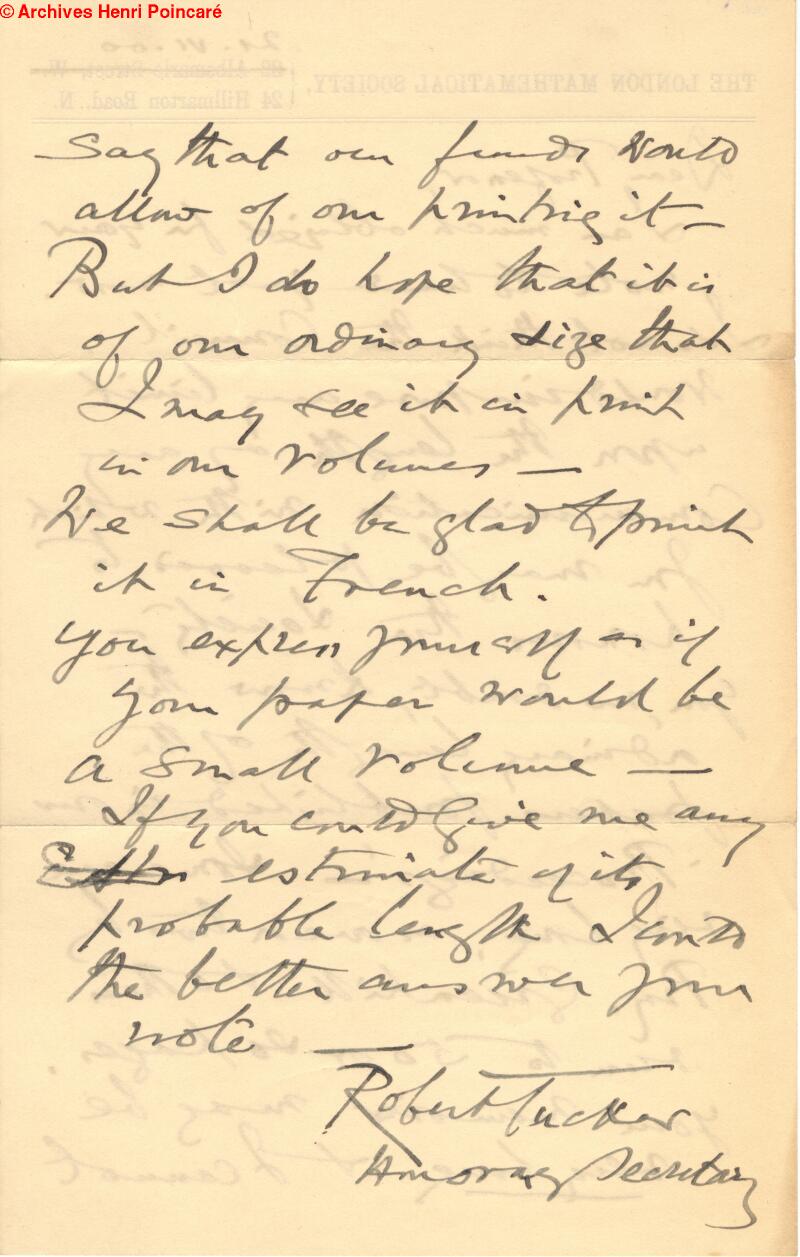 © Archives Henri Poincaré
21.VI.00
THE LONDON MATHEMATICAL SOCIETY,
22 Albemarle Street, W.
24 Hillmarton Road, N.
say that our funds would
allow of our printing it –
But I do hope that it is
of our ordinary size that
I may see it in print
in our volumes —
We shall be glad to print
it in French.
You express yourself as if
your paper would be
a small volume —
If you could give me any
estimate of its
probable length I could
the better answer your
note —
Robert Tucker
Honorary Secretary